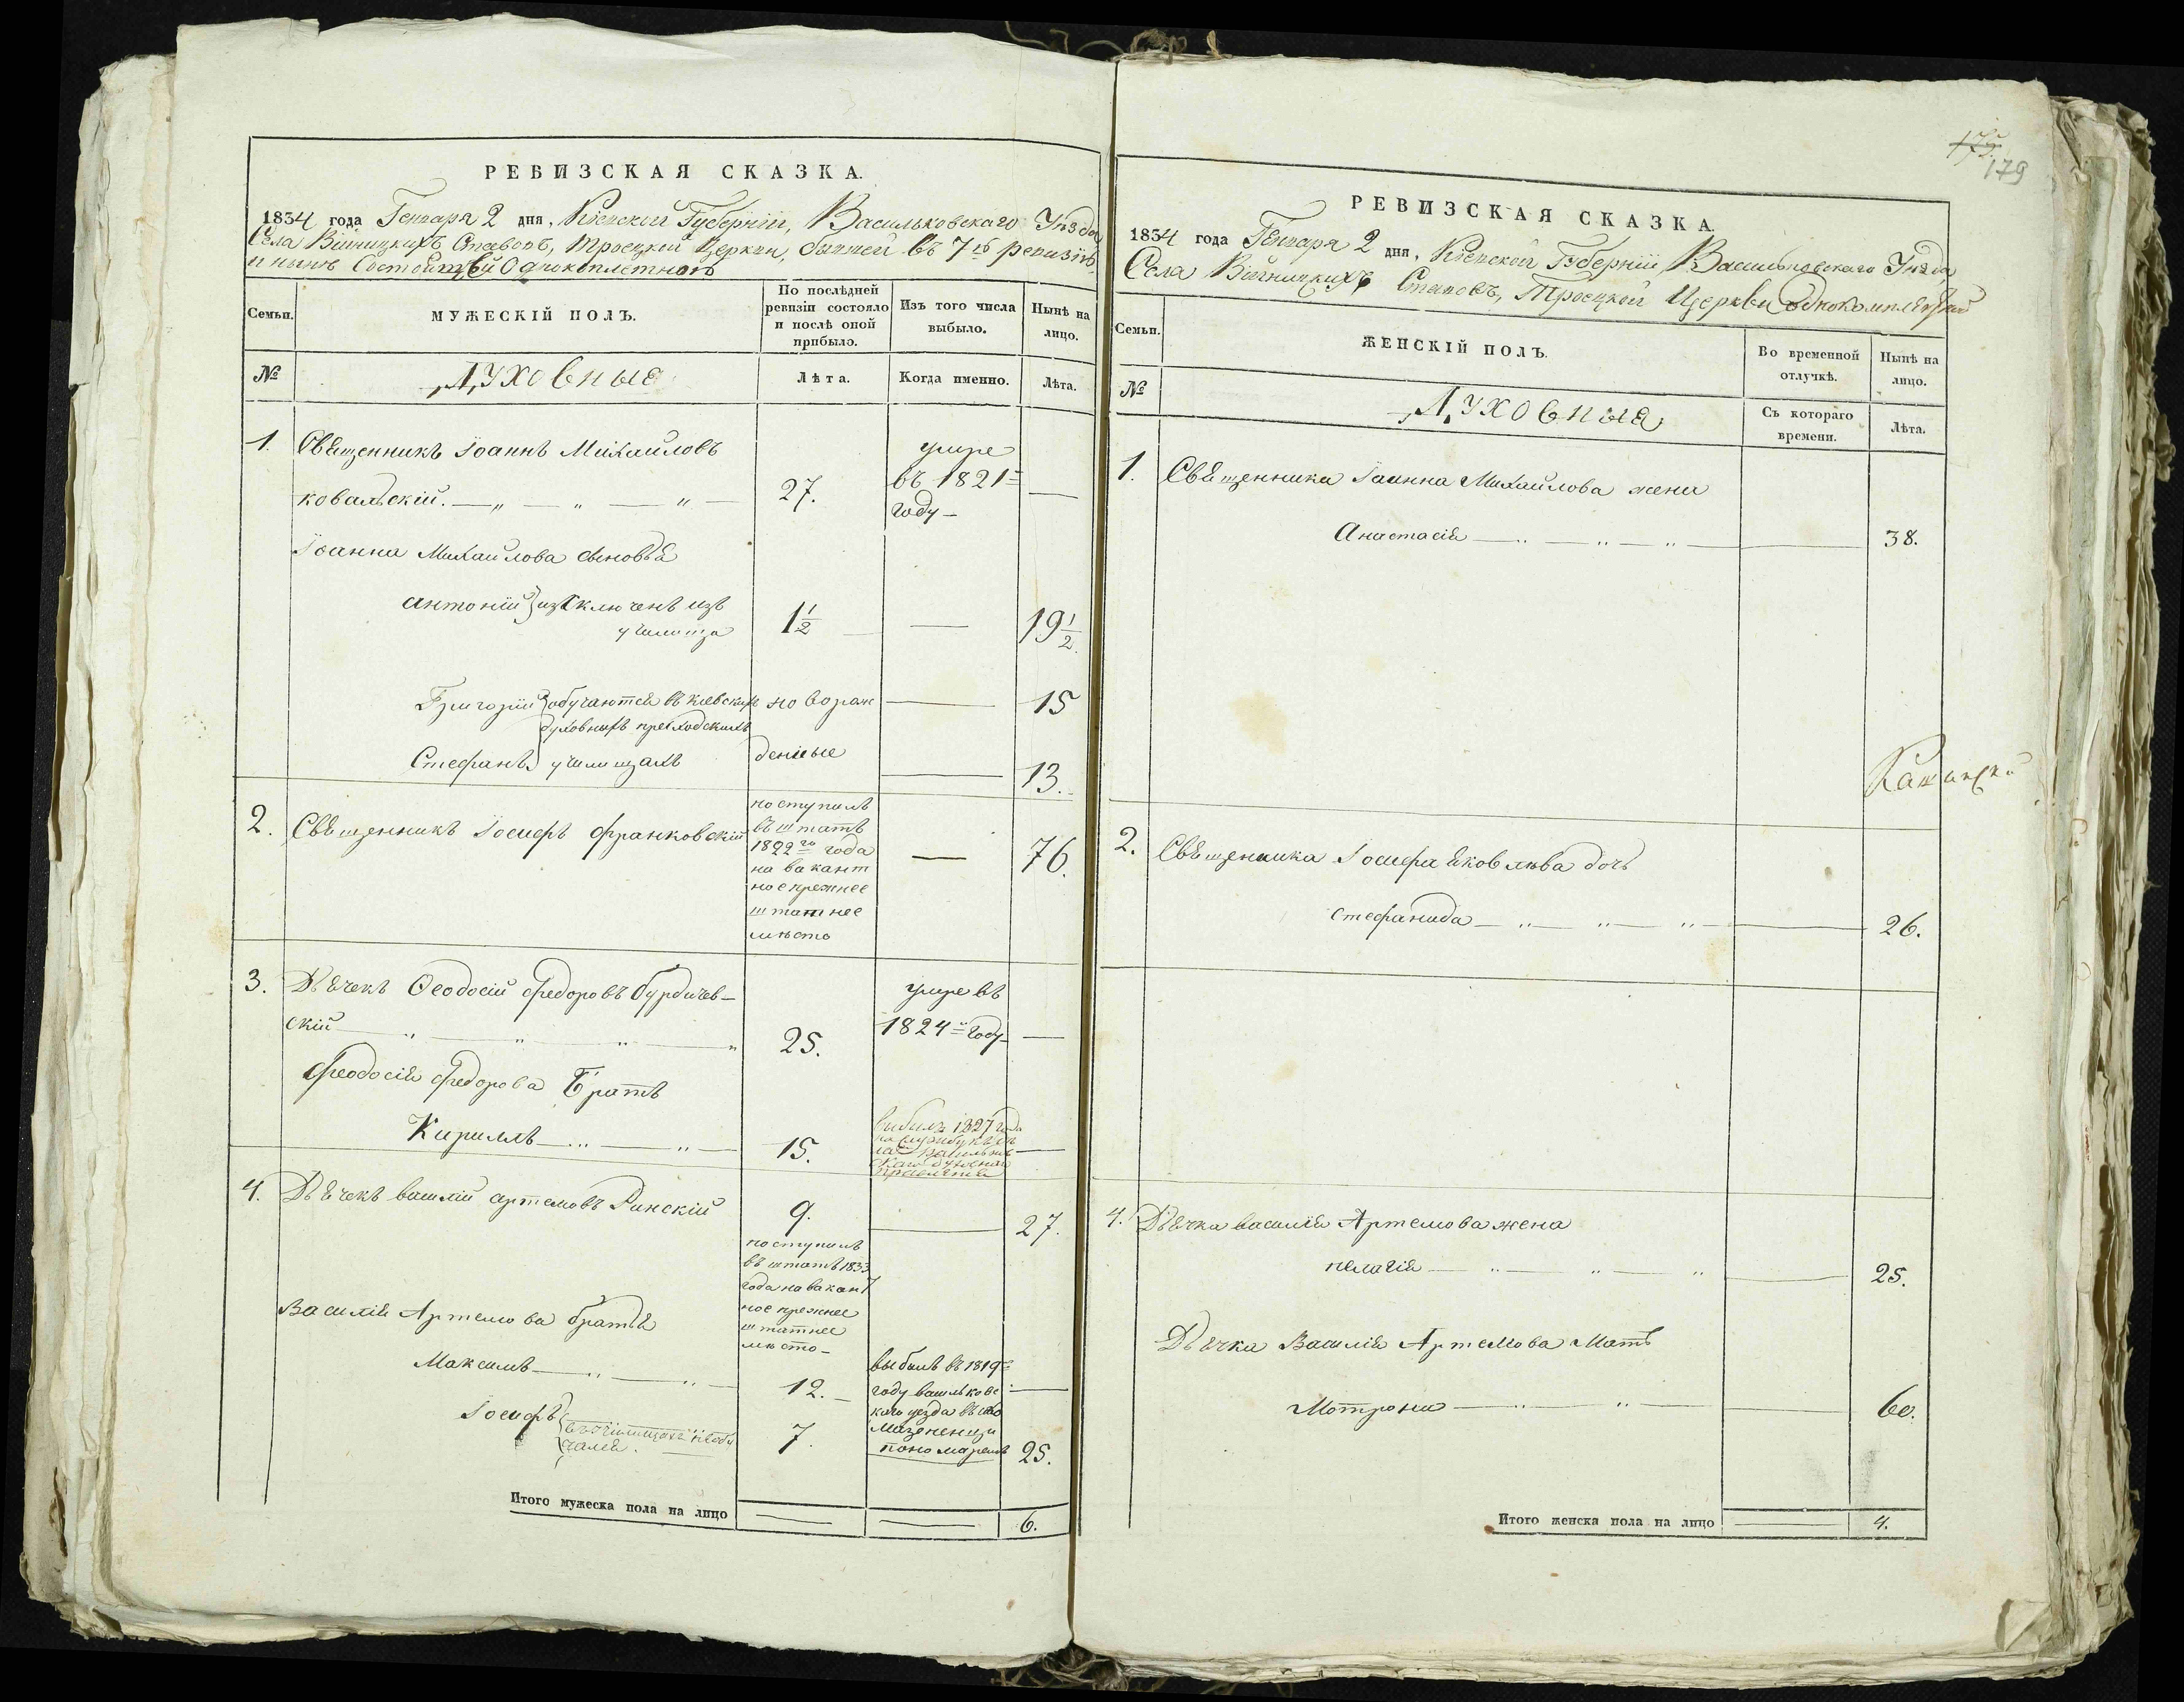 РЕВИЗСКАЯ СКАЗКА.
1834 года Генваря 2 дня, Кіевской Губерніи, Васильковскаго Уѣзда
Села Війницкихъ Ставовъ, Троецкой Церкви, бывшей въ 7й ревизіи
и нынѣ Состоящей Однокоплетной
Семьи.
МУЖЕСКІЙ ПОЛЪ.
По послѣдней
ревизіи состояло
и послѣ оной
прибыло.
Изъ того числа
выбыло.
Нынѣ на
лицо.
№
Духовныя
Лѣта.
Когда именно.
Лѣта.
1. Священникъ Іоаннъ Михаиловъ
умре
въ 1821
году
ковальскій. 27.
Іоанна Михаилова сыновья
антоній изключенъ изъ
училища
1½ 19½.
Григорій обучаются въ киевских новорож 15
духовныхъ
Стефанъ училищахъ денные 13.
2. Священникъ Іосифъ Франковскій
поступилъ
въ штатъ
1822го года
на вакант
ное прежнее
штатнее
мѣсто
76.
3. Дьячекъ Ѳеодосій Федоровъ бурдичев-
скій 25.
умре въ
1824 году
Феодосія Федорова Братъ
Кириллъ 15.
выбилъ 1827 года
4. Дьячекъ василій артемовъ Ринскій 9. 27.
поступилъ
въ штатъ 1833
года на вакант
ное прежнее
штатнее
мѣсто
Василія Артемова братья
Максимъ 12.
выбилъ въ 1819
году васильковс
каго уезда въ село
пономаремъ
Іосифъ 7. 25.
Итого мужеска пола на лицо 6.
179
РЕВИЗСКАЯ СКАЗКА.
1834 года Генваря 2 дня, Кіевской Губерніи, Васильковскаго Уѣзда,
Села Війницкихъ Ставовъ, Троецкой Церкви однокомплектной
Семьи.
ЖЕНСКІЙ ПОЛЪ.
Во временной
отлучкѣ.
Нынѣ на
лицо.
№
Духовныя
Съ котораго
времени.
Лѣта.
1. Священника Іоанна Михаилова жена
Анастасія 38.
2. Священника Іосифа яковлева дочь
стефанида 26.
4. Дьячка василія Артемова жена
пелагія 25.
Дьячка Василія Артемова Мать
Мотрона 60.
Итого женска пола на лицо 4.